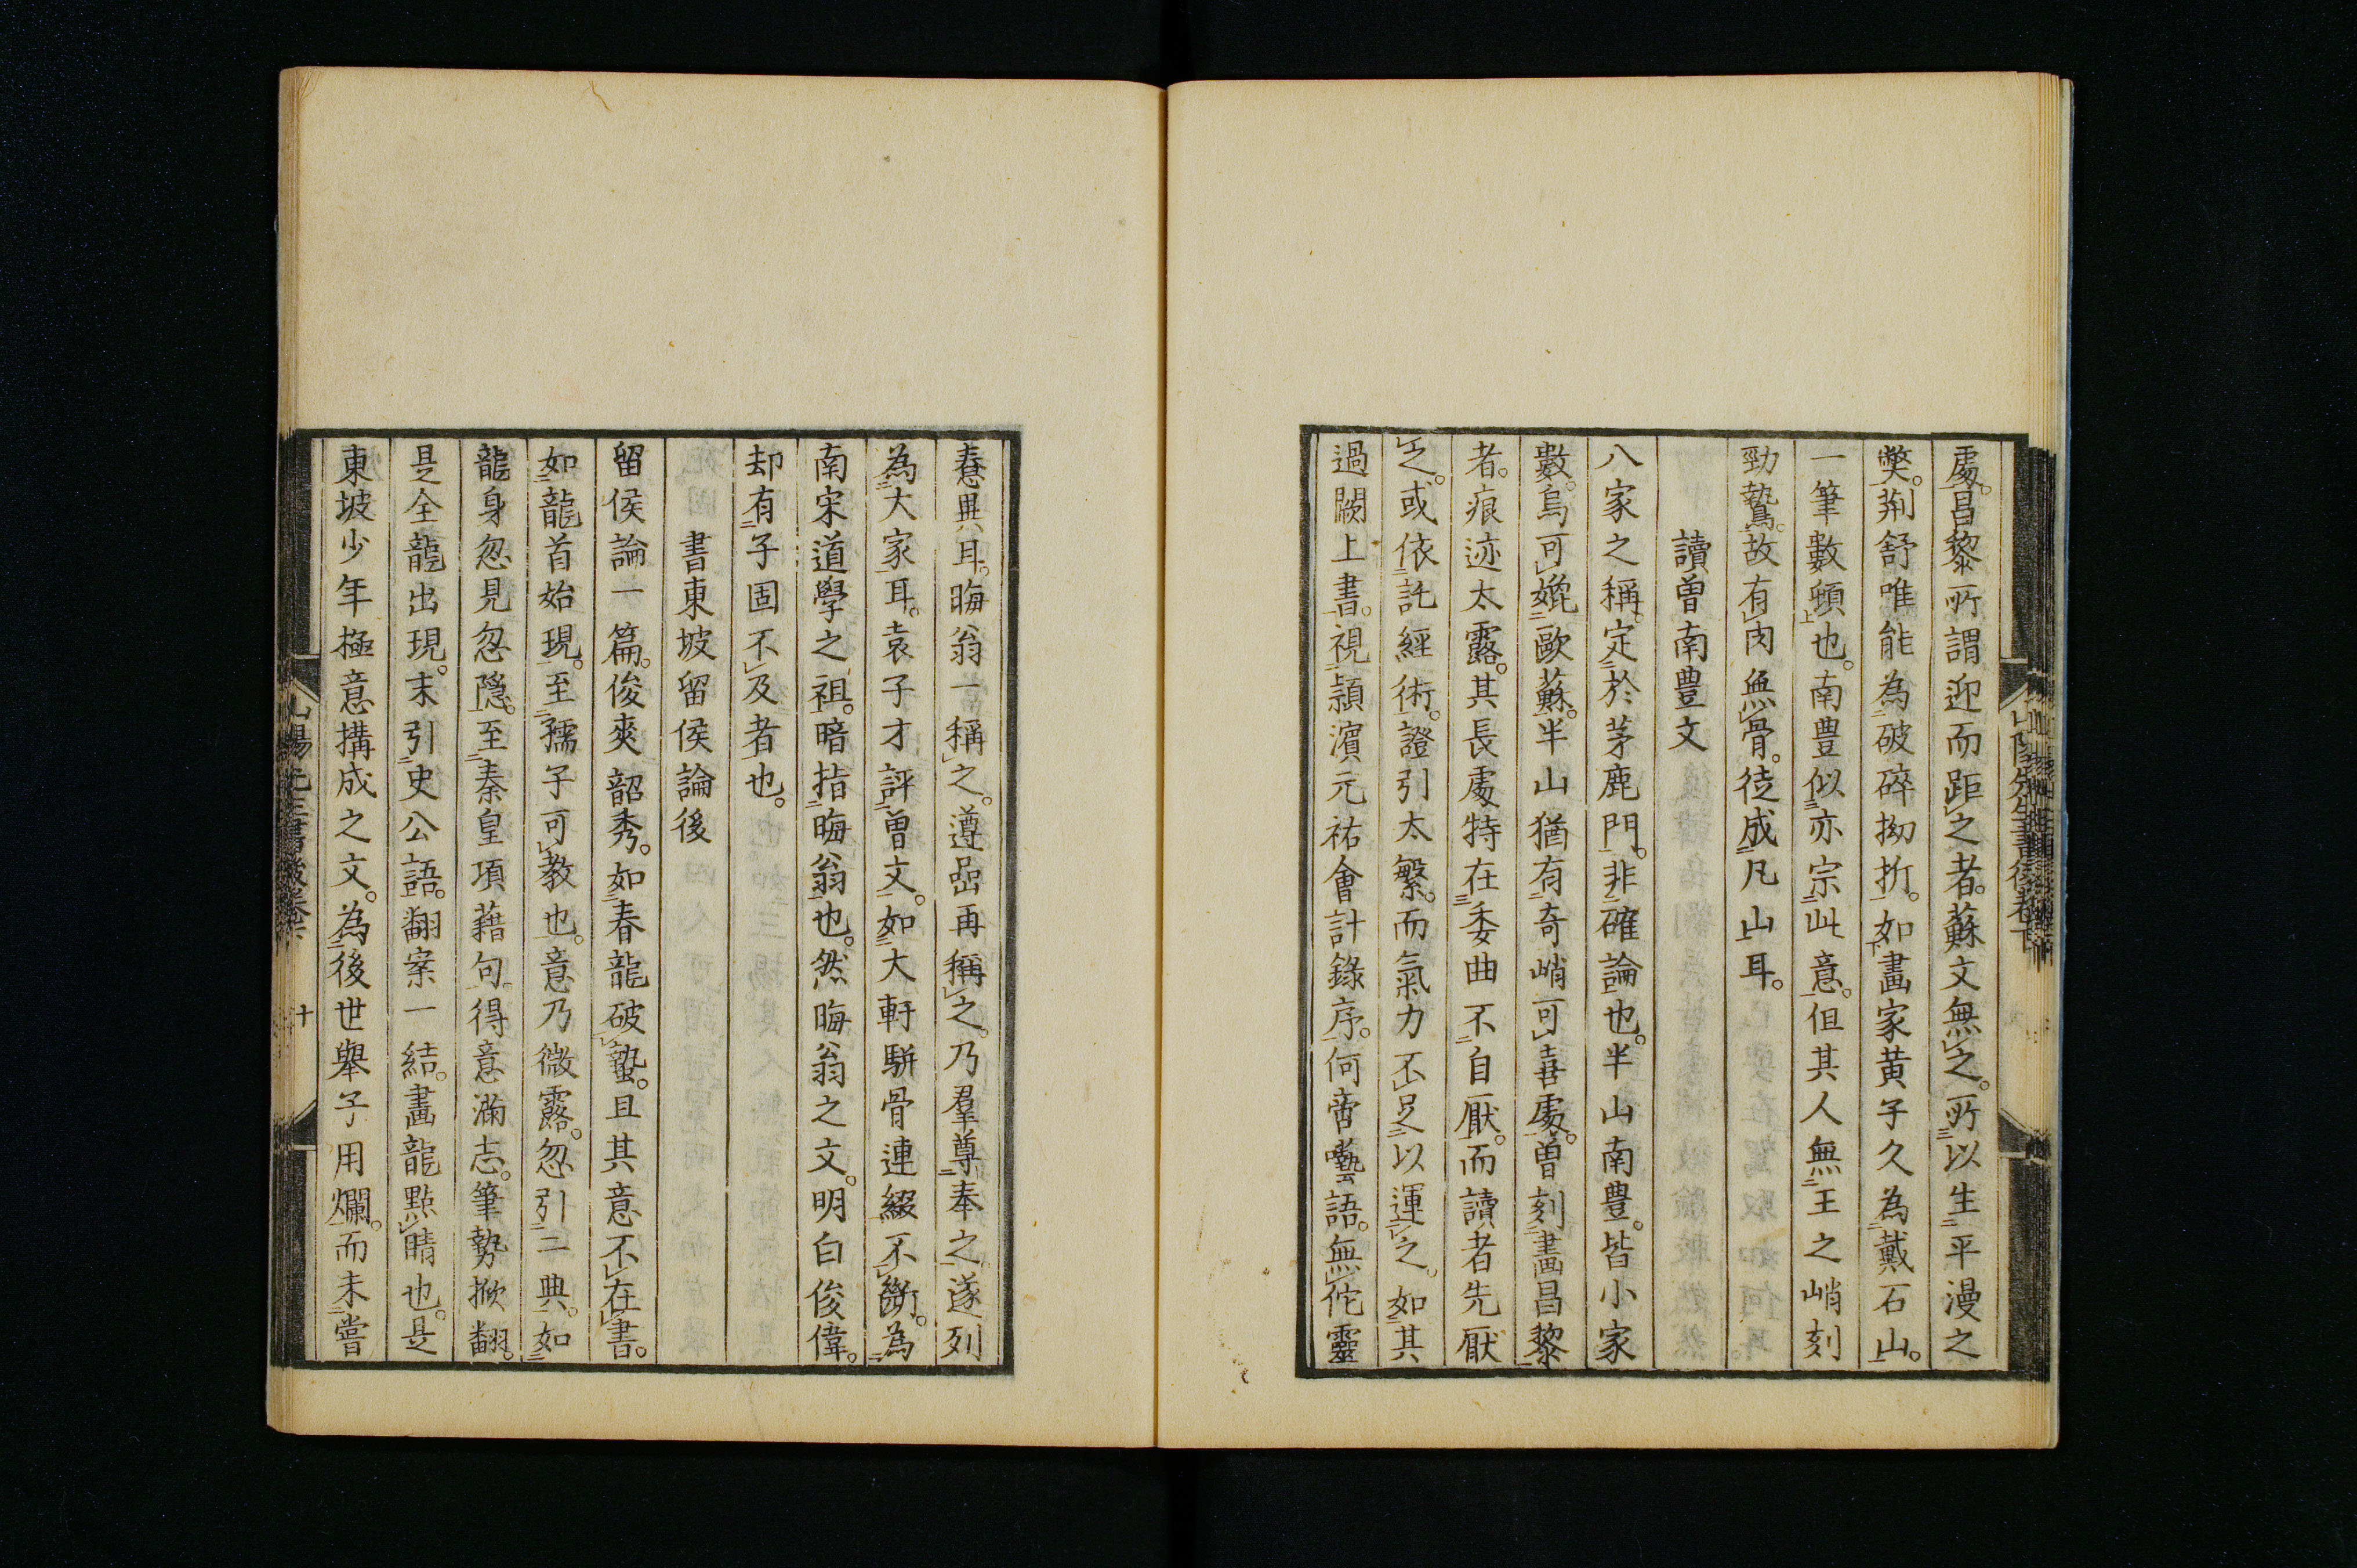 處。昌黎所謂迎而距之者。蘇文無之。所以生平漫之
弊。荊舒唯能為破碎拗折。如畫家黄子久為戴石山。
一筆數頓也。南豐似亦宗此意。但其人無王之峭刻
勁鷙。故有肉無骨。徒成凡山耳。
讀曽南豐文
八家之稱。定於茅鹿門。非確論也。半山南豐。皆小家
數。烏可媲歐蘇。半山猶有奇峭可喜處。曽刻畫昌黎
者。痕迹太露。其長處特在委曲不自厭。而讀者先厭
之。或依託經術。證引太繁。而氣力不足以運之。如其
過闕上書。視潁濱元祐會計錄序。何啻囈語。無佗靈
意與耳。晦翁一稱之。遵嵒再稱之。乃羣尊奉之。遂列
為大家耳。袁子才評曽文。如大軒駢骨連綴不斷。為
南宋道學之祖。暗指晦翁也。然晦翁之文。明白俊偉。
却有子固不及者也。
書東坡留侯論後
留侯論一篇。俊爽韶秀。如春龍破蟄。且其意不在書。
如龍首始現。至孺子可教也。意乃微露。忽引二典。如
龍身忽見忽隱。至秦皇項藉句。得意滿志。筆勢掀翻。
是全龍出現。末引史公語。翻案一結。畫龍點睛也。是
東坡少年極意搆成之文。為後世舉子用爛。而未嘗
山陽先生書後卷下 十